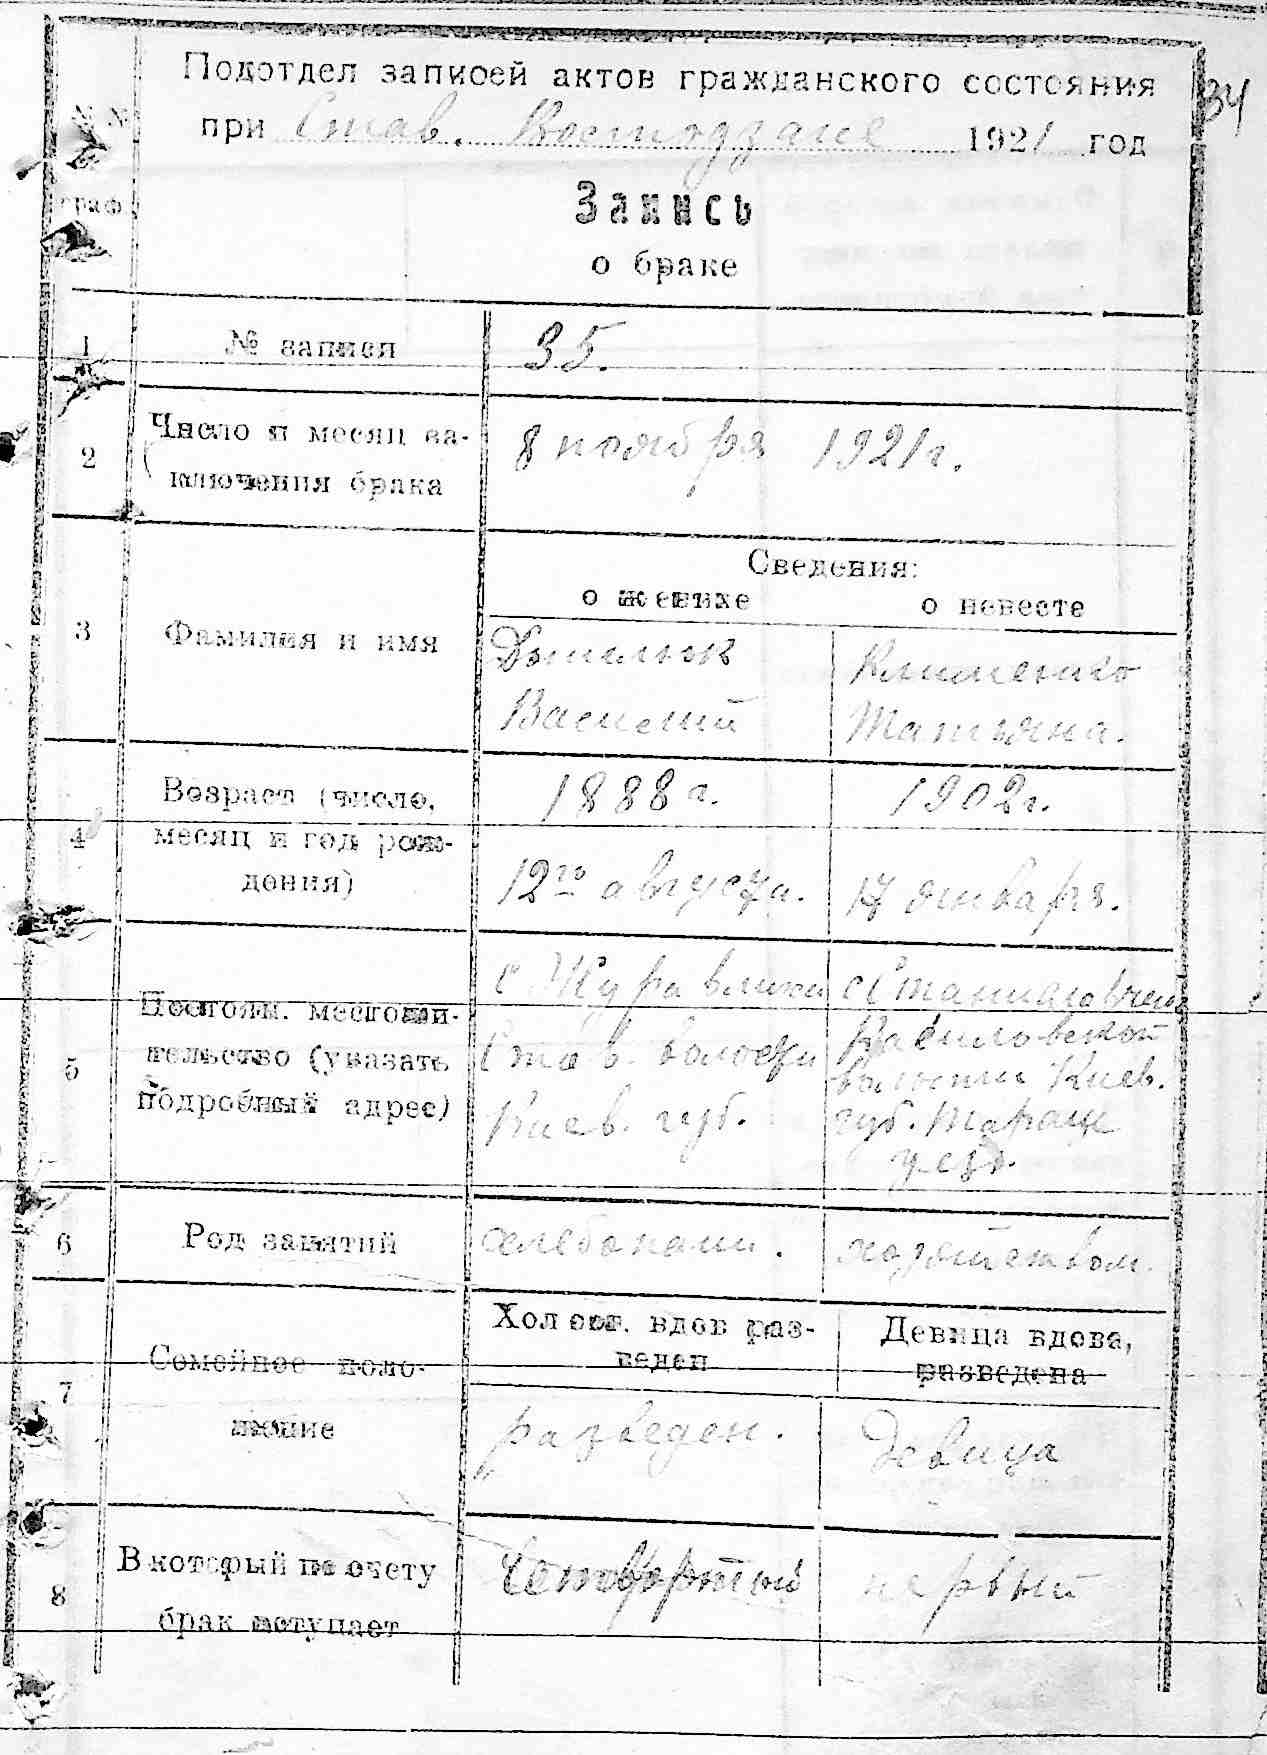 34
Подотдел записей актов гражданского состояния
при Став. 1921 год
№№
граф
Запись
о браке
1 № записи 35.
2 Число и месяц за-
ключения брака
8 ноября 1921 г.
Сведения:
о женихе о невесте
3 Фамилия и имя
Василий
Клименко
Татьяна.
4 Возраст (число,
месяц и год рож-
дения)
1888 г.
12го августа.
1902 г.
17 января.
5 Постоян. местожи-
тельство (указать
подробный адрес)
с Журавлихи
Став. волости
Киев. губ.
с
волости Киев.
губ. Таращ
уезд.
6 Род занятий хлебопаш. хозяйством.
7 Семейное поло-
жение
Холост. вдов раз-
веден
Девица вдова,
разведена
разведен. Девица
8 В который по счету
брак вступает
Четвертый первый